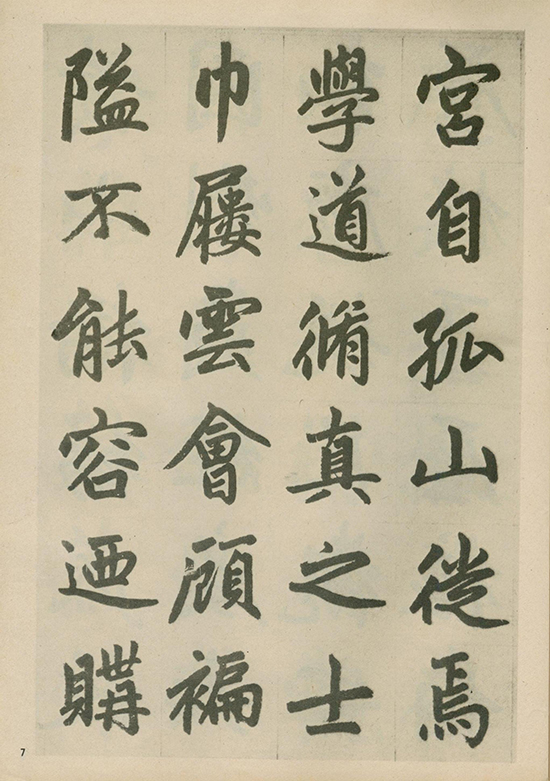 宮自孤山徙焉
學道脩真之士
巾屨雲會顧褊
隘不能容迺購
7